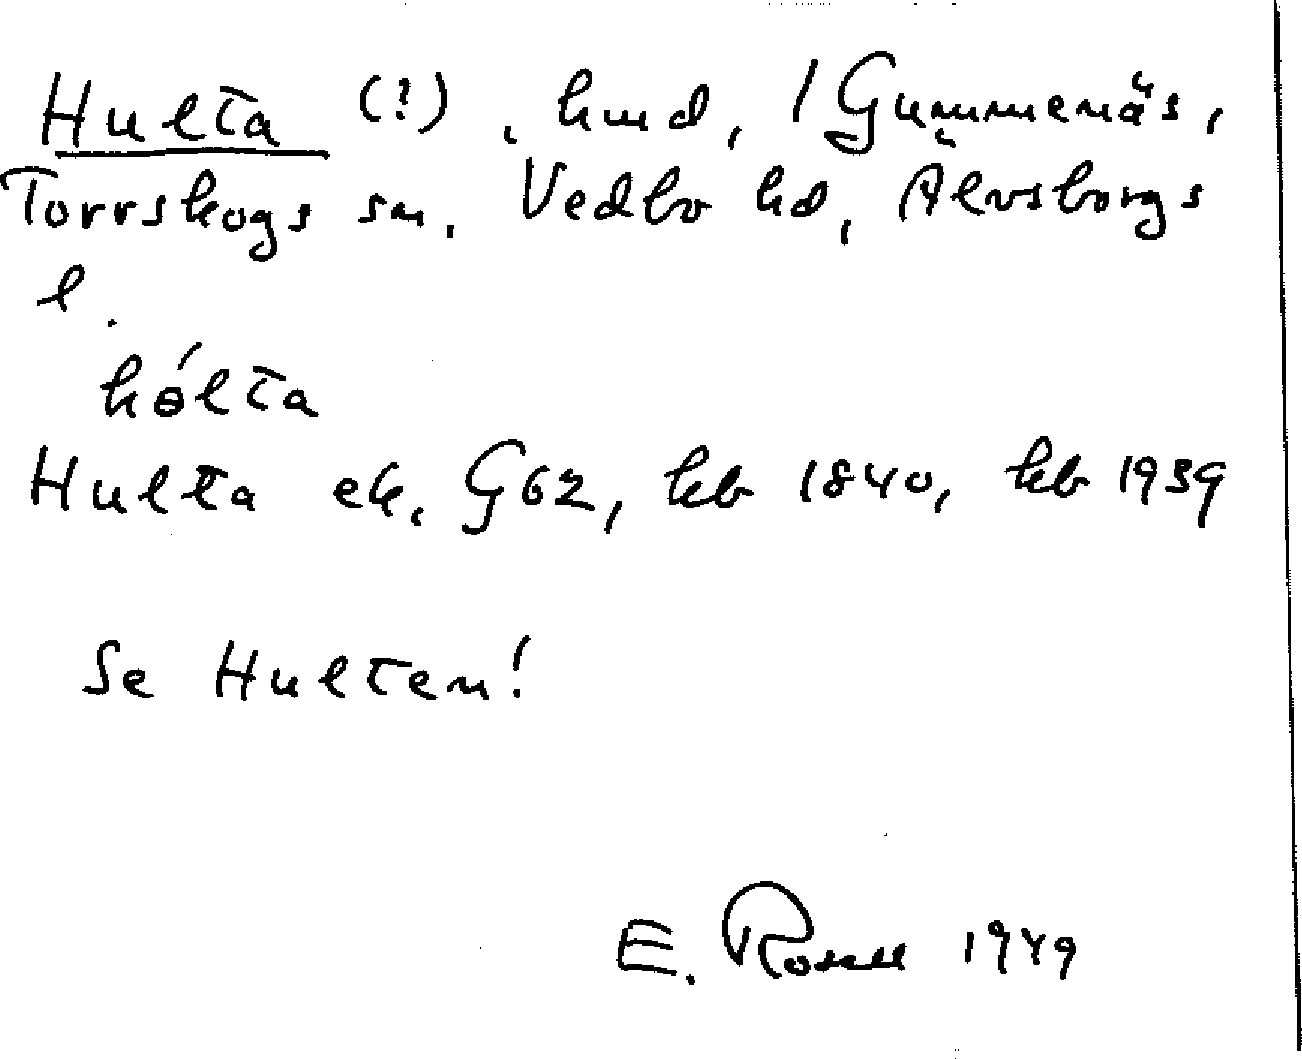 Hulta (?), hmd, / Gummenäs,
Torrskogs sn, Vedbo hd, Älvsborgs
l.
hólta
Hulta ek. G62, kb 1840, kb 1939
Se Hulten!
E. 1949